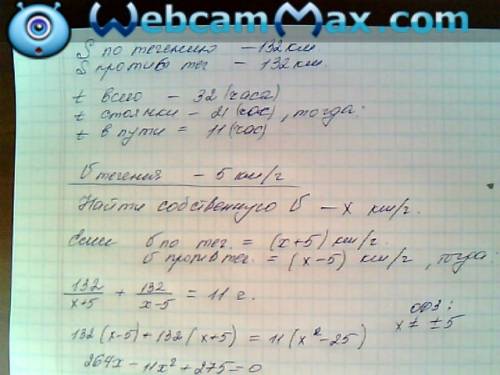 WebcamMax.com
S по течению — 132 км
S против теч — 132 км.
t всего — 32 (часа)
t стоянки — 21 (час), тогда:
t в пути = 11 (час)
υ течения — 5 км/ч
Найти собственную υ — x км/ч.
Если υ по теч. = (x+5) км/ч.
υ против теч. = (x-5) км/ч, тогда:
132/x+5 + 132/x-5 = 11 ч.
ОДЗ:
x ≠ ±5
132(x-5)+132(x+5) = 11(x²-25)
264x - 11x² + 275 = 0